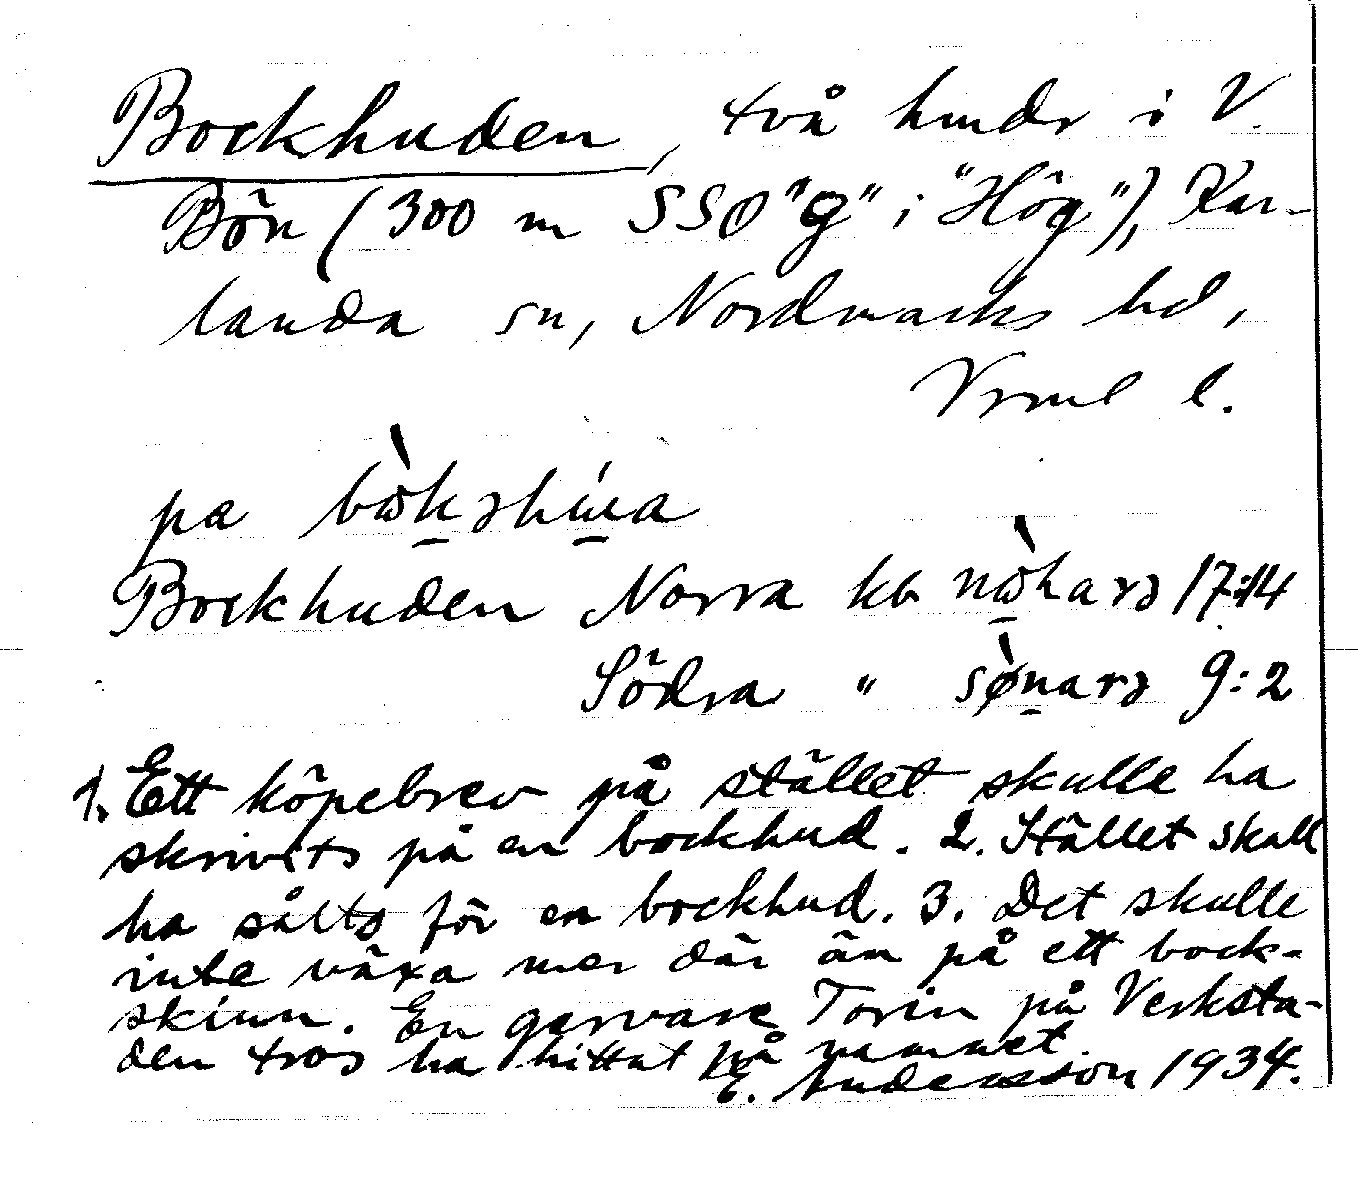 Bockhuden, två hmdr i V.
Bön (300 m SSO "g" i "Hög"), Kar-
landa sn, Nordmarks hd,
Vrml l.
pa
Bockhuden Norra kb 17:14
Södra " 9:2
1. Ett köpebrev på stället skulle ha
skrivits på en bockhud. 2. Stället skall
ha sålts för en bockhud. 3. Det skulle
inte växa mer där än på ett bock-
skinn. En garvare Torin på Verksta-
den tros ha hittat på namnet.
E. Andersson 1934.